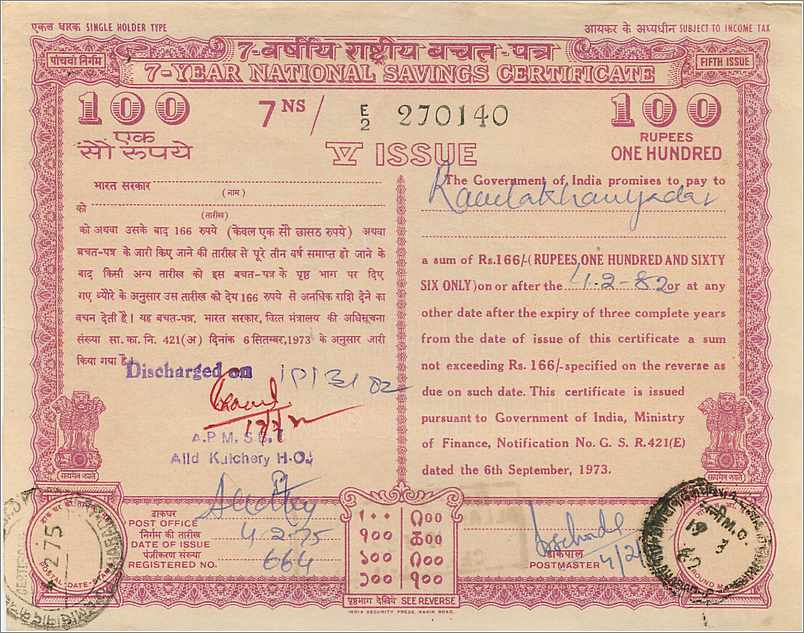 एकल धारक SINGLE HOLDER TYPE
आयकर के अध्यधीन SUBJECT TO INCOME TAX
पांचवां निर्गम
7-वर्षीय राष्ट्रीय बचत-पत्र
7-YEAR NATIONAL SAVINGS CERTIFICATE
FIFTH ISSUE
100
7 NS/
E/2 270140
100
एक
सौ रूपये
V ISSUE
RUPEES
ONE HUNDRED
भारत सरकार
(नाम)
को
(तारीख)
को अथवा उसके बाद 166 रुपये (केवल एक सौ छासठ रुपये) अथवा
बचत-पत्र के जारी किए जाने की तारीख से पूरे तीन वर्ष समाप्त हो जाने के
बाद किसी अन्य तारीख को इस बचत-पत्र के पृष्ठ भाग पर दिए
गए ब्यौरे के अनुसार उस तारीख को देय 166 रुपये से अनधिक राशि देने का
वचन देती है। यह बचत-पत्र, भारत सरकार, वित्त मंत्रालय की अधिसूचना
संख्या सा. का. नि. 421 (अ) दिनांक 6 सितम्बर, 1973 के अनुसार जारी
किया गया है।
Discharged on
A.P.M. S.B.
Alld Kutchery H.O.
The Government of India promises to pay to
a sum of Rs.166/-(RUPEES, ONE HUNDRED AND SIXTY
SIX ONLY) on or after the 11.2-82 or at any
other date after the expiry of three complete years
from the date of issue of this certificate a sum
not exceeding Rs. 166/- specified on the reverse as
due on such date. This certificate is issued
pursuant to Government of India, Ministry
of Finance, Notification No. G. S. R. 421(E)
dated the 6th September, 1973.
सत्यमेव जयते
सत्यमेव जयते
डाकघर
POST OFFICE
निर्गम की तारीख
DATE OF ISSUE 4-2-75
पंजीकरण संख्या
REGISTERED NO. 664
डाकपाल
POSTMASTER
पृष्ठभाग देखिये SEE REVERSE
INDIA SECURITY PRESS, NASIK ROAD.